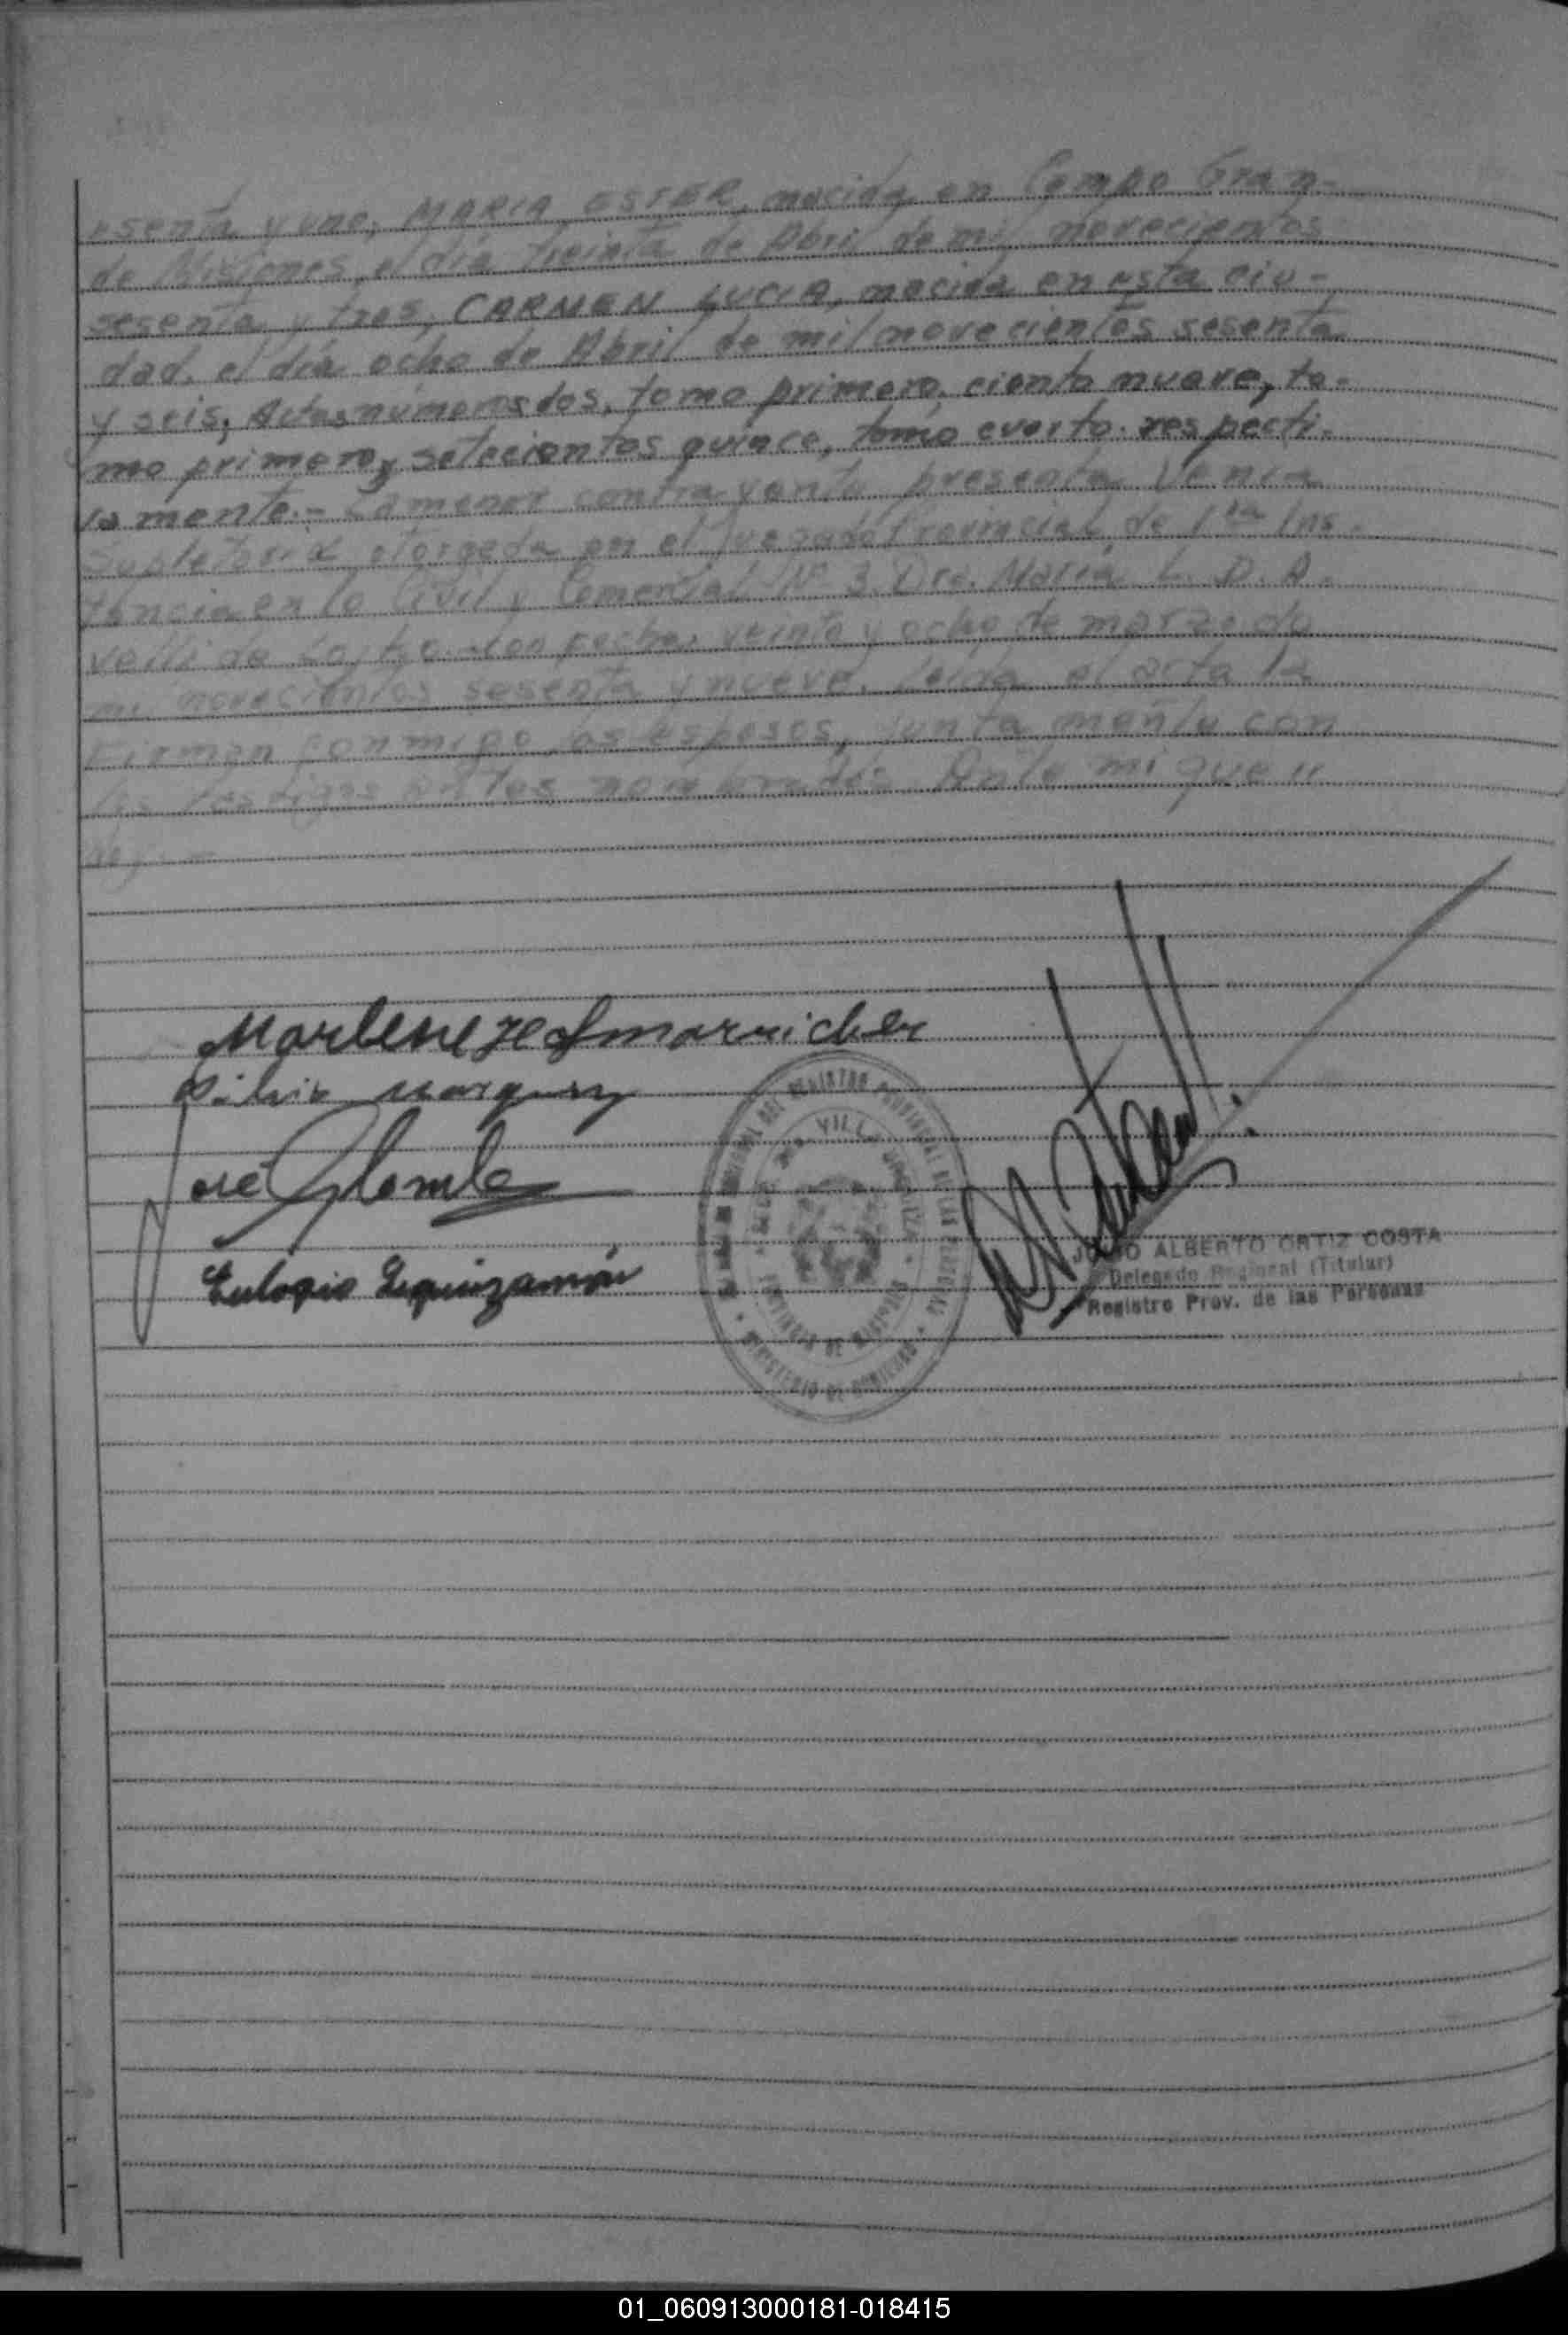 esenta y uno; MARIA ESTER, nacida en Campo Gran-
de Misiones, el día treinta de Abril de mil novecientos
sesenta y tres; CARMEN LUCIA, nacida en esta ciu-
dad, el día ocho de Abril de mil novecientos sesenta
y seis; Actas números dos, tomo primero, ciento nueve, to-
mo primero y setecientos quince, tomo cuarto. respecti-
vamente.- La menor contrayente presenta Venia
Supletoria otorgada en el Juzgado Provincial de 1ra Ins-
tancia en lo Civil y Comercial Nº 3. Dra. María L. D. A.
velli de con fecha veinte y ocho de marzo de
mil novecientos sesenta y nueve. Leída el acta la
Firman conmigo los esposos, juntamente con
los testigos antes nombrados Ante mi que
doy
Marlene
Silvio Marquez
José
Eulogio Leguizamón
REGISTRO PROVINCIAL DE LAS PERSONAS
MINISTERIO DE GOBIERNO
PROVINCIA DE MISIONES
JULIO ALBERTO ORTIZ COSTA
Delegado Regional (Titular)
Registro Prov. de las Personas
01_060913000181-018415